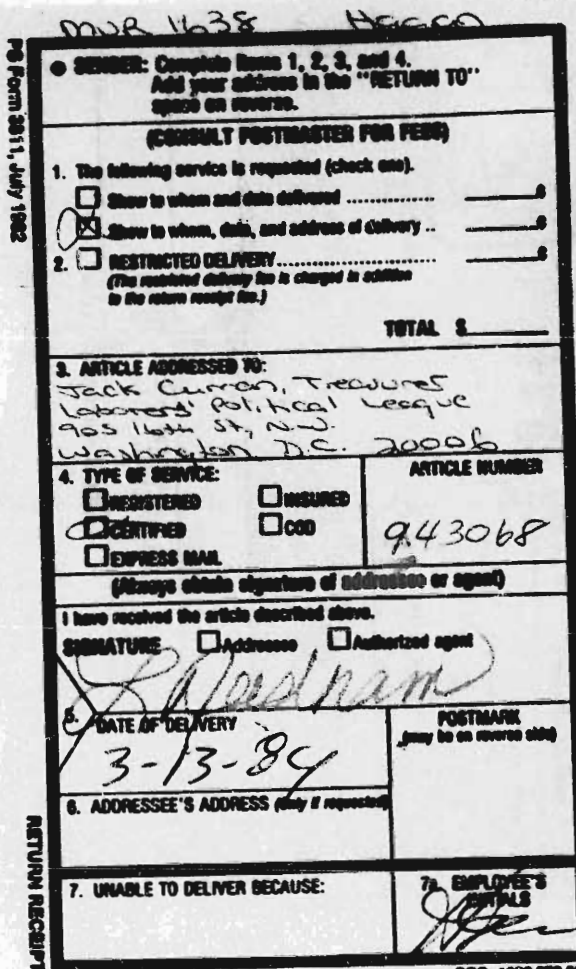 MUR 1638 Haggo
● SENDER: Complete items 1, 2, 3, and 4.
Add your address in the "RETURN TO"
space on reverse.
(CONSULT POSTMASTER FOR FEES)
1. The following service is requested (check one).
Show to whom and date delivered .................... ¢
☒ Show to whom, date, and address of delivery .. ¢
2. RESTRICTED DELIVERY .................... ¢
(The restricted delivery fee is charged in addition
to the return receipt fee.)
TOTAL $
3. ARTICLE ADDRESSED TO:
Jack Curran, Treasurer
Laborers' Political League
905 16th St, N.W.
Washington D.C. 20006
4. TYPE OF SERVICE:
ARTICLE NUMBER
REGISTERED INSURED
CERTIFIED COD
943068
EXPRESS MAIL
(Always obtain signature of addressee or agent)
I have received the article described above.
SIGNATURE Addressee Authorized agent
L Needham
5. DATE OF DELIVERY
POSTMARK
(may be on reverse side)
3-13-84
6. ADDRESSEE'S ADDRESS (Only if requested)
7. UNABLE TO DELIVER BECAUSE:
7a. EMPLOYEE'S
INITIALS
PS Form 3811, July 1982
RETURN RECEIPT